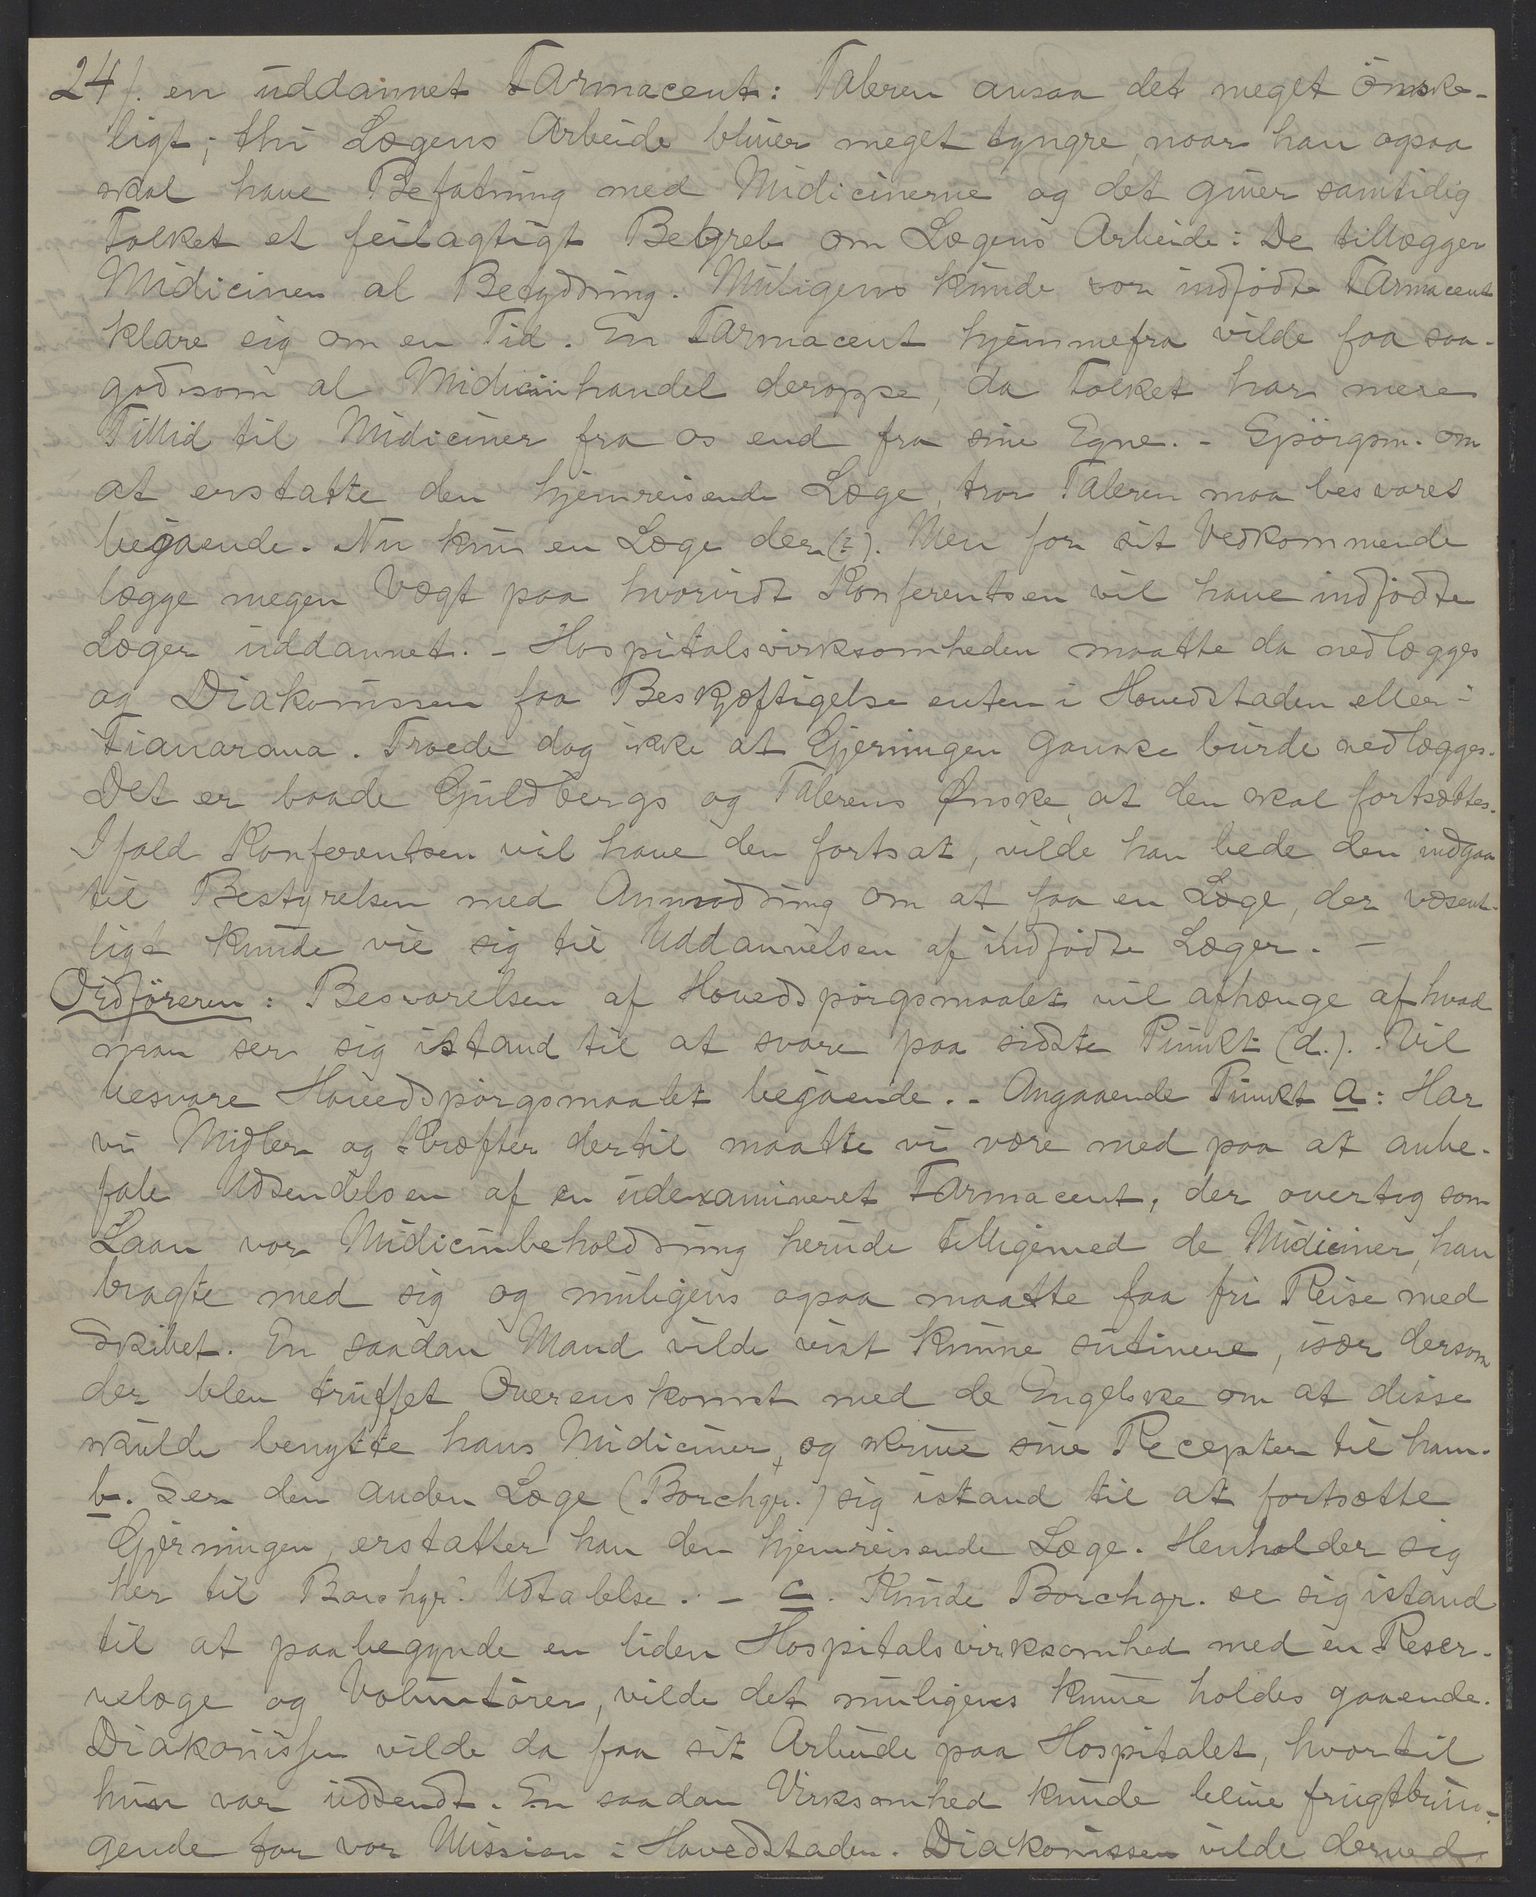 24/. en uddannet Farmaceut: Taleren ansaa det meget ønske-
ligt; thi Lægens Arbeide bliver meget tyngre, naar han ogsaa
skal have Befatning med Midicinerne og det giver samtidig
Folket et feilagtigt Begreb om Lægens Arbeide: De tillægger
Midicinen al Betydning. Muligens kunde vor indfødte Farmaceut
klare sig om en Tid. En Farmaceut hjemmefra vilde faa saa-
godsom al Midicinhandel deroppe, da Folket har mere
Tillid til Midiciner fra os end fra sine Egne. - Spørgsm. om
at erstatte den hjemreisende Læge, tror Taleren maa besvares
bejaende. Nu kun en Læge der(?). Men for sit Vedkommende
lægge megen Vægt paa hvorvidt Konferentsen vil have indfødte
Læger uddannet. - Hospitalsvirksomheden maatte da nedlægges
og Diakonissen faa Beskjæftigelse enten i Hovedstaden eller i
Fianarana. Troede dog ikke at Gjerningen ganske burde nedlægges.
Det er baade Guldbergs og Talerens Ønske, at den skal fortsættes.
Ifald Konferentsen vil have den fortsat, vilde han bede den indgaa
til Bestyrelsen med Anmodning om at faa en Læge, der væsent-
ligt kunde vie sig til Uddannelsen af indfødte Læger. -
Ordføreren: Besvarelsen af Hovedspørgsmaalet vil afhænge af hvad
man ser sig istand til at svare paa sidste Punkt (d.). Vil
besvare Hovedspørgsmaalet bejaende. - Angaaende Punkt a: Har
vi Midler og Kræfter dertil maatte vi være med paa at anbe-
fale Udsendelsen af en udexamineret Farmaceut, der overtog som
Laan vor Midicinbeholdning herude tilligemed de Midiciner, han
bragte med sig og muligens ogsaa maatte faa fri Reise med
Skibet. En saadan Mand vilde vist kunne sutinere, især dersom
der blev truffet Overenskomst med de Engelske om at disse
skulde benytte hans Midiciner, og skrive sine Recepter til ham.
b. Ser den anden Læge (Borchgr.) sig istand til at fortsætte
Gjerningen, erstatter han den hjemreisende Læge. Henholder sig
her til Borchgr.s Udtalelse. - c. Kunde Borchgr. se sig istand
til at paabegynde en liden Hospitalsvirksomhed med en Reser-
velæge og Voluntører, vilde det muligens kunne holdes gaaende.
Diakonissen vilde da faa sit Arbeide paa Hospitalet, hvortil
hun var uddsendt. En saadan Virksomhed kunde blive frugtbrin-
gende for vor Mission i Hovedstaden. Diakonissen vilde derved